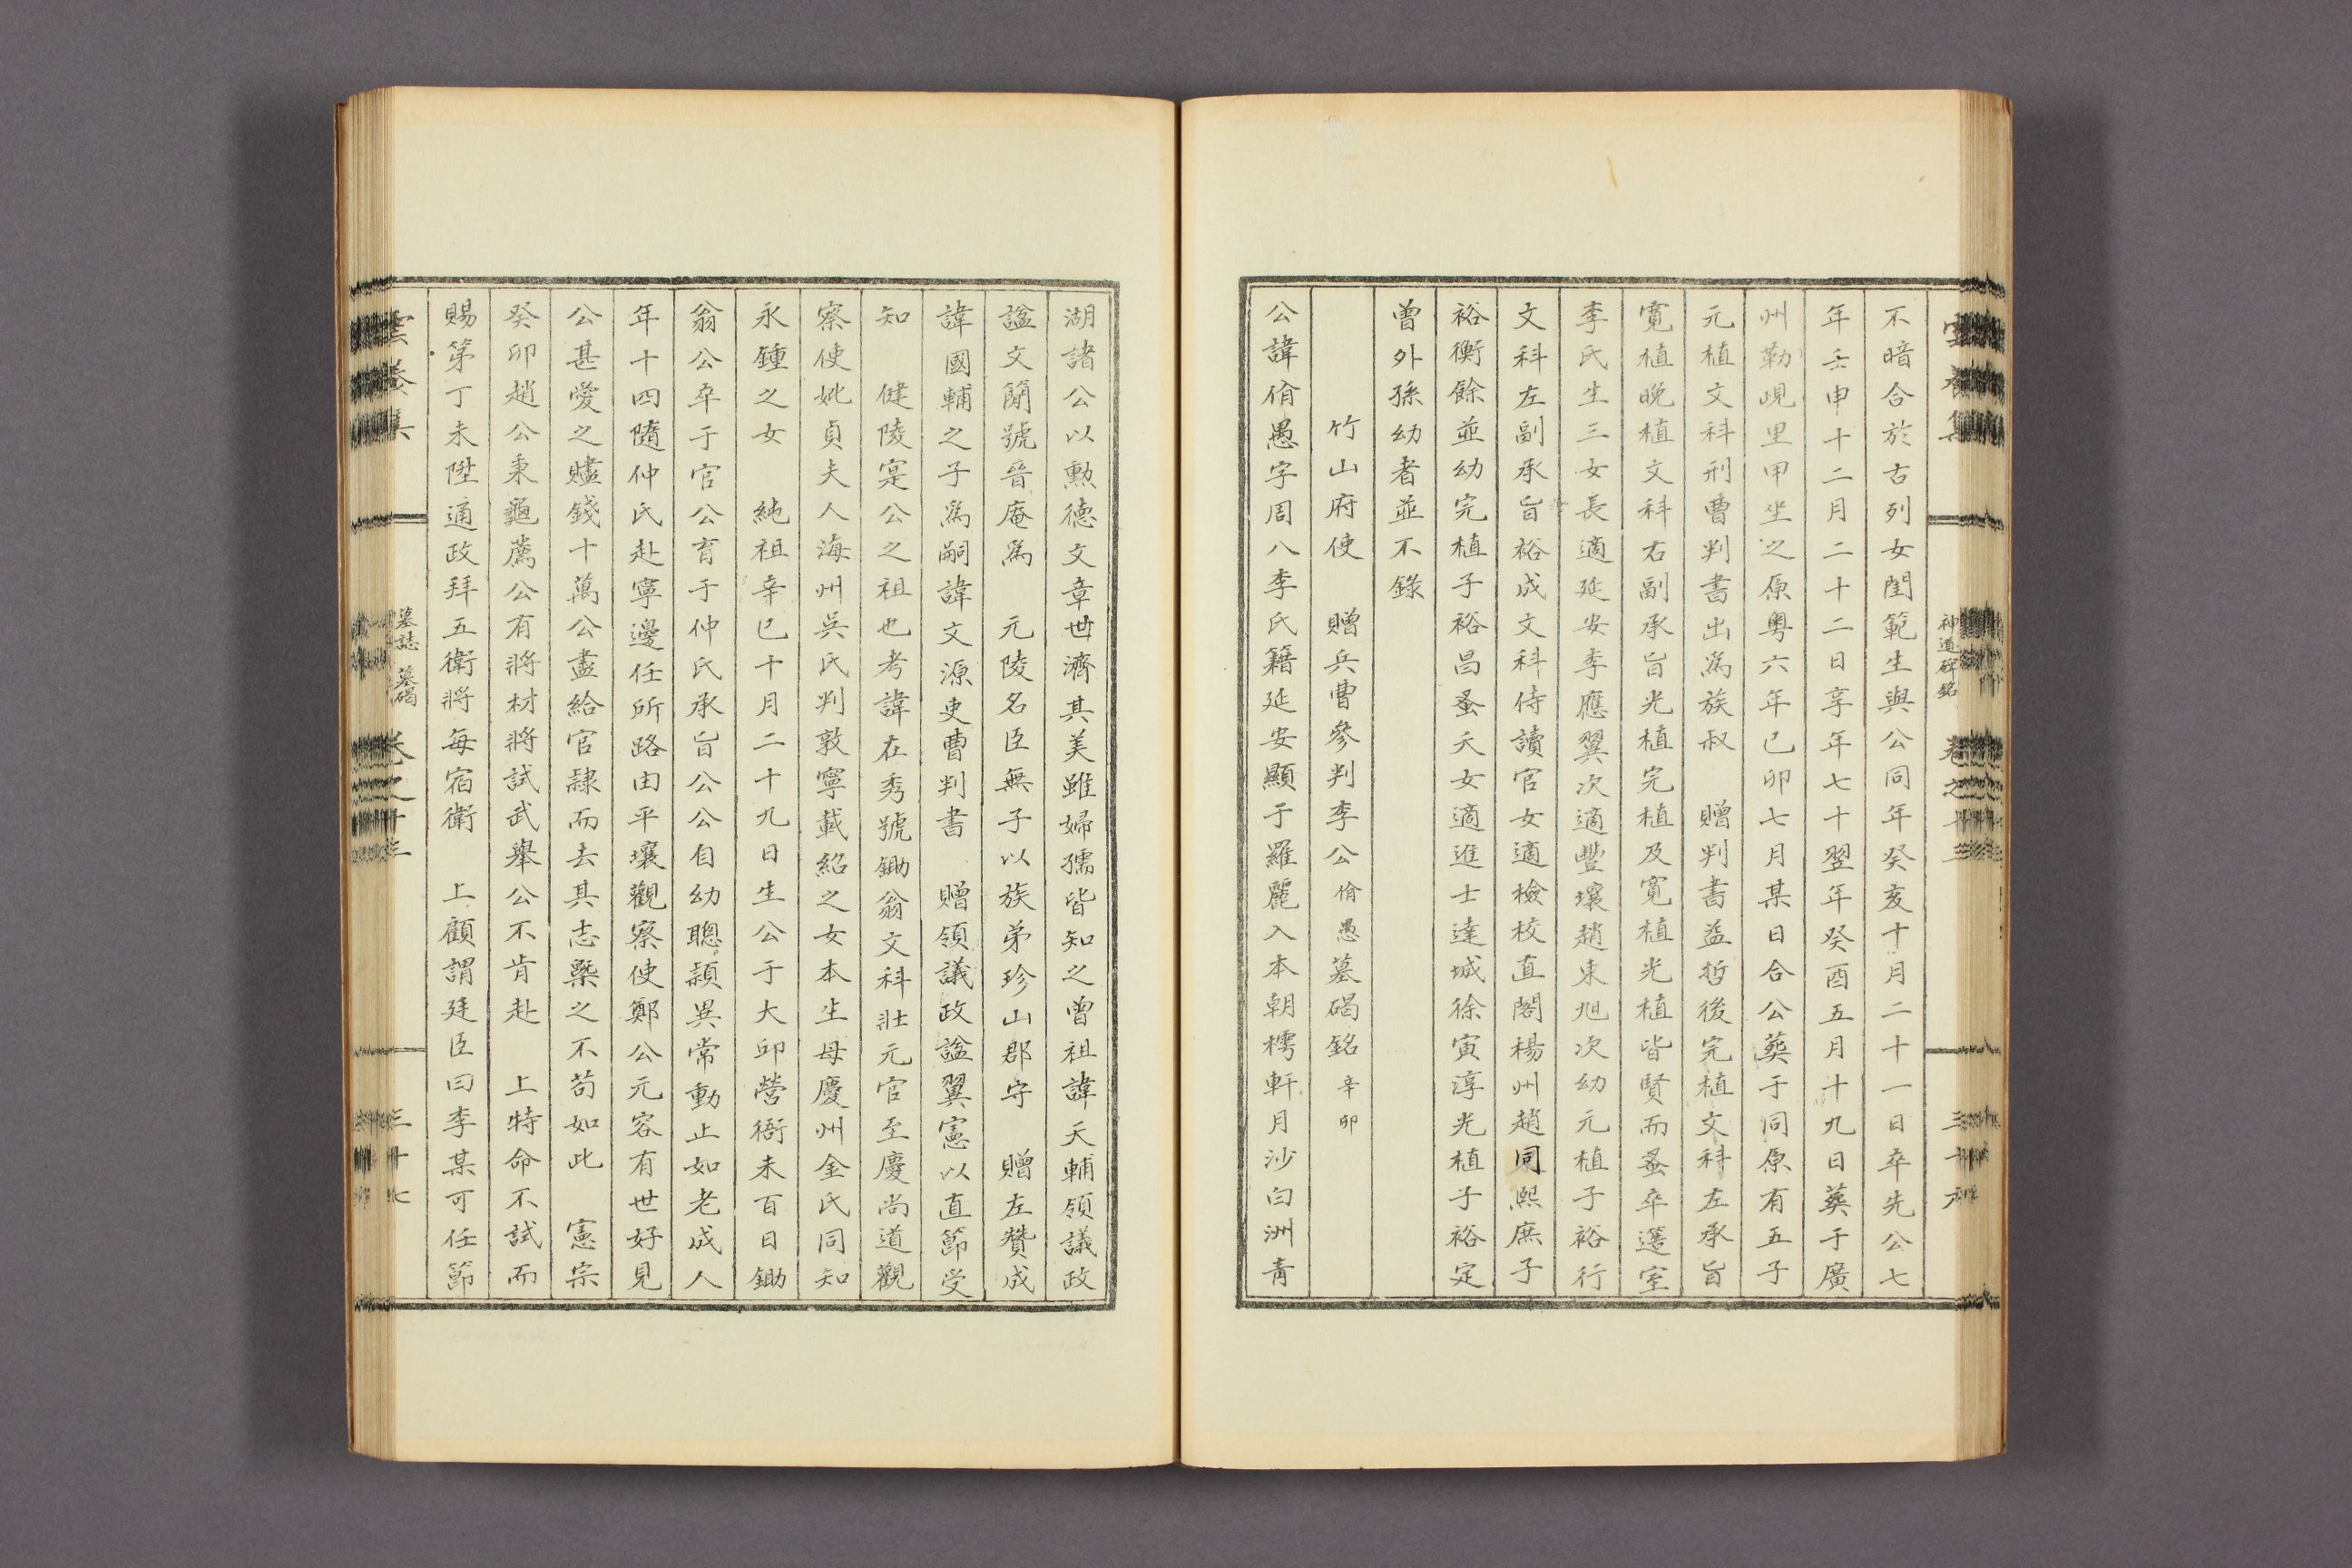 不暗合於古列女閨範生與公同年癸亥十月二十一日卒先公七
年壬申十二月二十二日享年七十翌年癸酉五月十九日葬于廣
州勒峴里甲坐之原粤六年己卯七月某日合公葬于同原有五子
元植文科刑曹判書出爲族叔 贈判書益哲後完植文科左承旨
寬植晩植文科右副承旨光植完植及寬植光植皆賢而蚤卒籧室
李氏生三女長適延安李應翼次適豐壤趙東旭次幼元植子裕行
文科左副承旨裕成文科侍讀官女適檢校直閣楊州趙同熙庶子
裕衡餘並幼完植子裕昌蚤夭女適進士達城徐寅淳光植子裕定
曾外孫幼者並不錄
竹山府使 贈兵曹參判李公偗愚墓碣銘 辛卯
公諱偗愚字周八李氏籍延安顯于羅麗入本朝樗軒月沙白洲青
神道碑銘
湖諸公以勲德文章世濟其美雖婦孺皆知之曾祖諱天輔領議政
諡文簡號晉庵爲 元陵名臣無子以族弟珍山郡守 贈左贊成
諱國輔之子爲嗣諱文源吏曹判書 贈領議政諡翼憲以直節受
知 健陵寔公之祖也考諱在秀號鋤翁文科壯元官至慶尚道觀
察使妣貞夫人海州吳氏判敦寧載紹之女本生母慶州金氏同知
永鍾之女 純祖辛巳十月二十九日生公于大邱營衙未百日鋤
翁公卒于官公育于仲氏承旨公公自幼聰穎異常動止如老成人
年十四隨仲氏赴寧邊任所路由平壤觀察使鄭公元容有世好見
公甚愛之贐錢十萬公盡給官隷而去其志槩之不苟如此 憲宗
癸卯趙公秉龜薦公有將材將試武舉公不肯赴 上特命不試而
賜第丁未陞通政拜五衛將每宿衛 上顧謂廷臣曰李某可任節
墓誌 墓碣
三十七